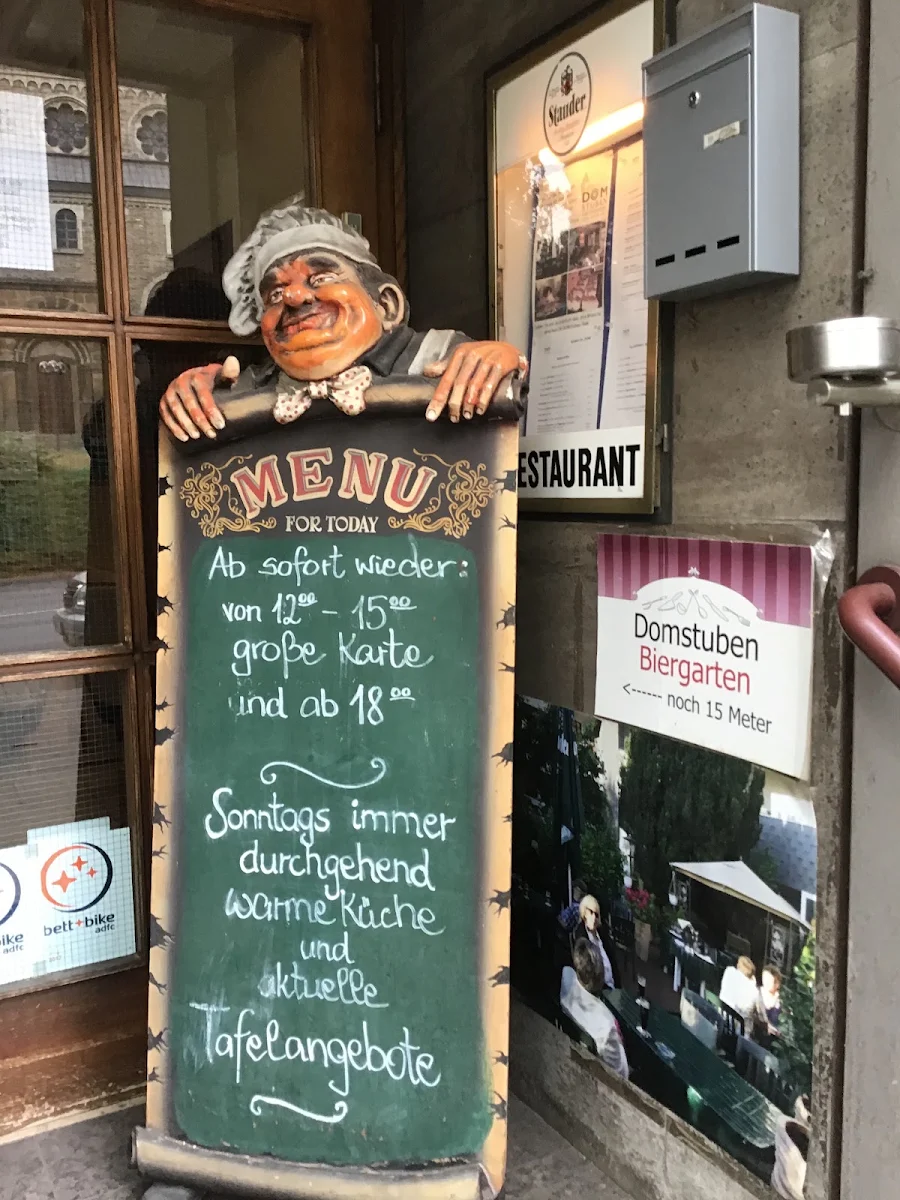 MENU
FOR TODAY
Ab sofort wieder:
von 12⁰⁰ - 15⁰⁰
große Karte
und ab 18⁰⁰
Sonntags immer
durchgehend
warme Küche
und
aktuelle
Tafelangebote
Stauder
DOM
ESTAURANT
Domstuben
Biergarten
<------ noch 15 Meter
ike
adfc
bett+bike
adfc